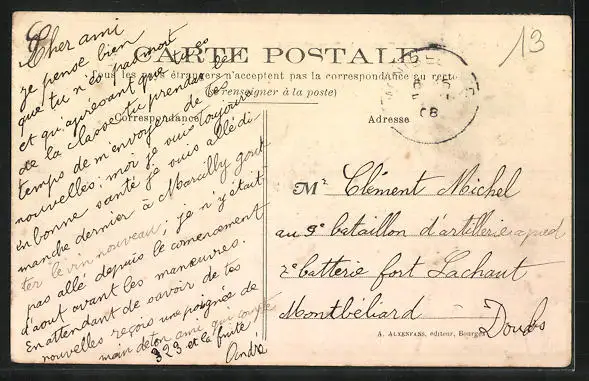 13
CARTE POSTALE
Tous les pays étrangers n'acceptent pas la correspondance au recto
(Se renseigner à la poste)
Correspondance
Adresse
08
Cher ami
je pense bien
que tu n'es pas mort
et qu'apresant que tu es
de la classe tu prendra le
temps de m'envoyer de tes
nouvelles; moi je suis toujours
en bonne santé je suis allé di-
manche dernier à Marcilly gout-
ter le vin nouveau; je n'y était
pas allé depuis le comencement
d'aout avant les manœuvres.
En attendant de savoir de tes
nouvelles reçois une poignée de
main de ton ami qui compte
323 et la fuite!
André
Mr Clément Michel
au 9e bataillon d'artillerie a pied
2e batterie fort Lachaut
Montbéliard
Doubs
A. AUXENFANS, éditeur, Bourges